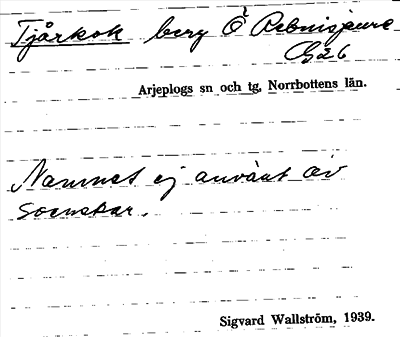 Tjårkok berg Ö Rebnisjaure
G26
Arjeplogs sn och tg, Norrbottens län.
Namnet ej använt av
svenskar.
Sigvard Wallström, 1939.